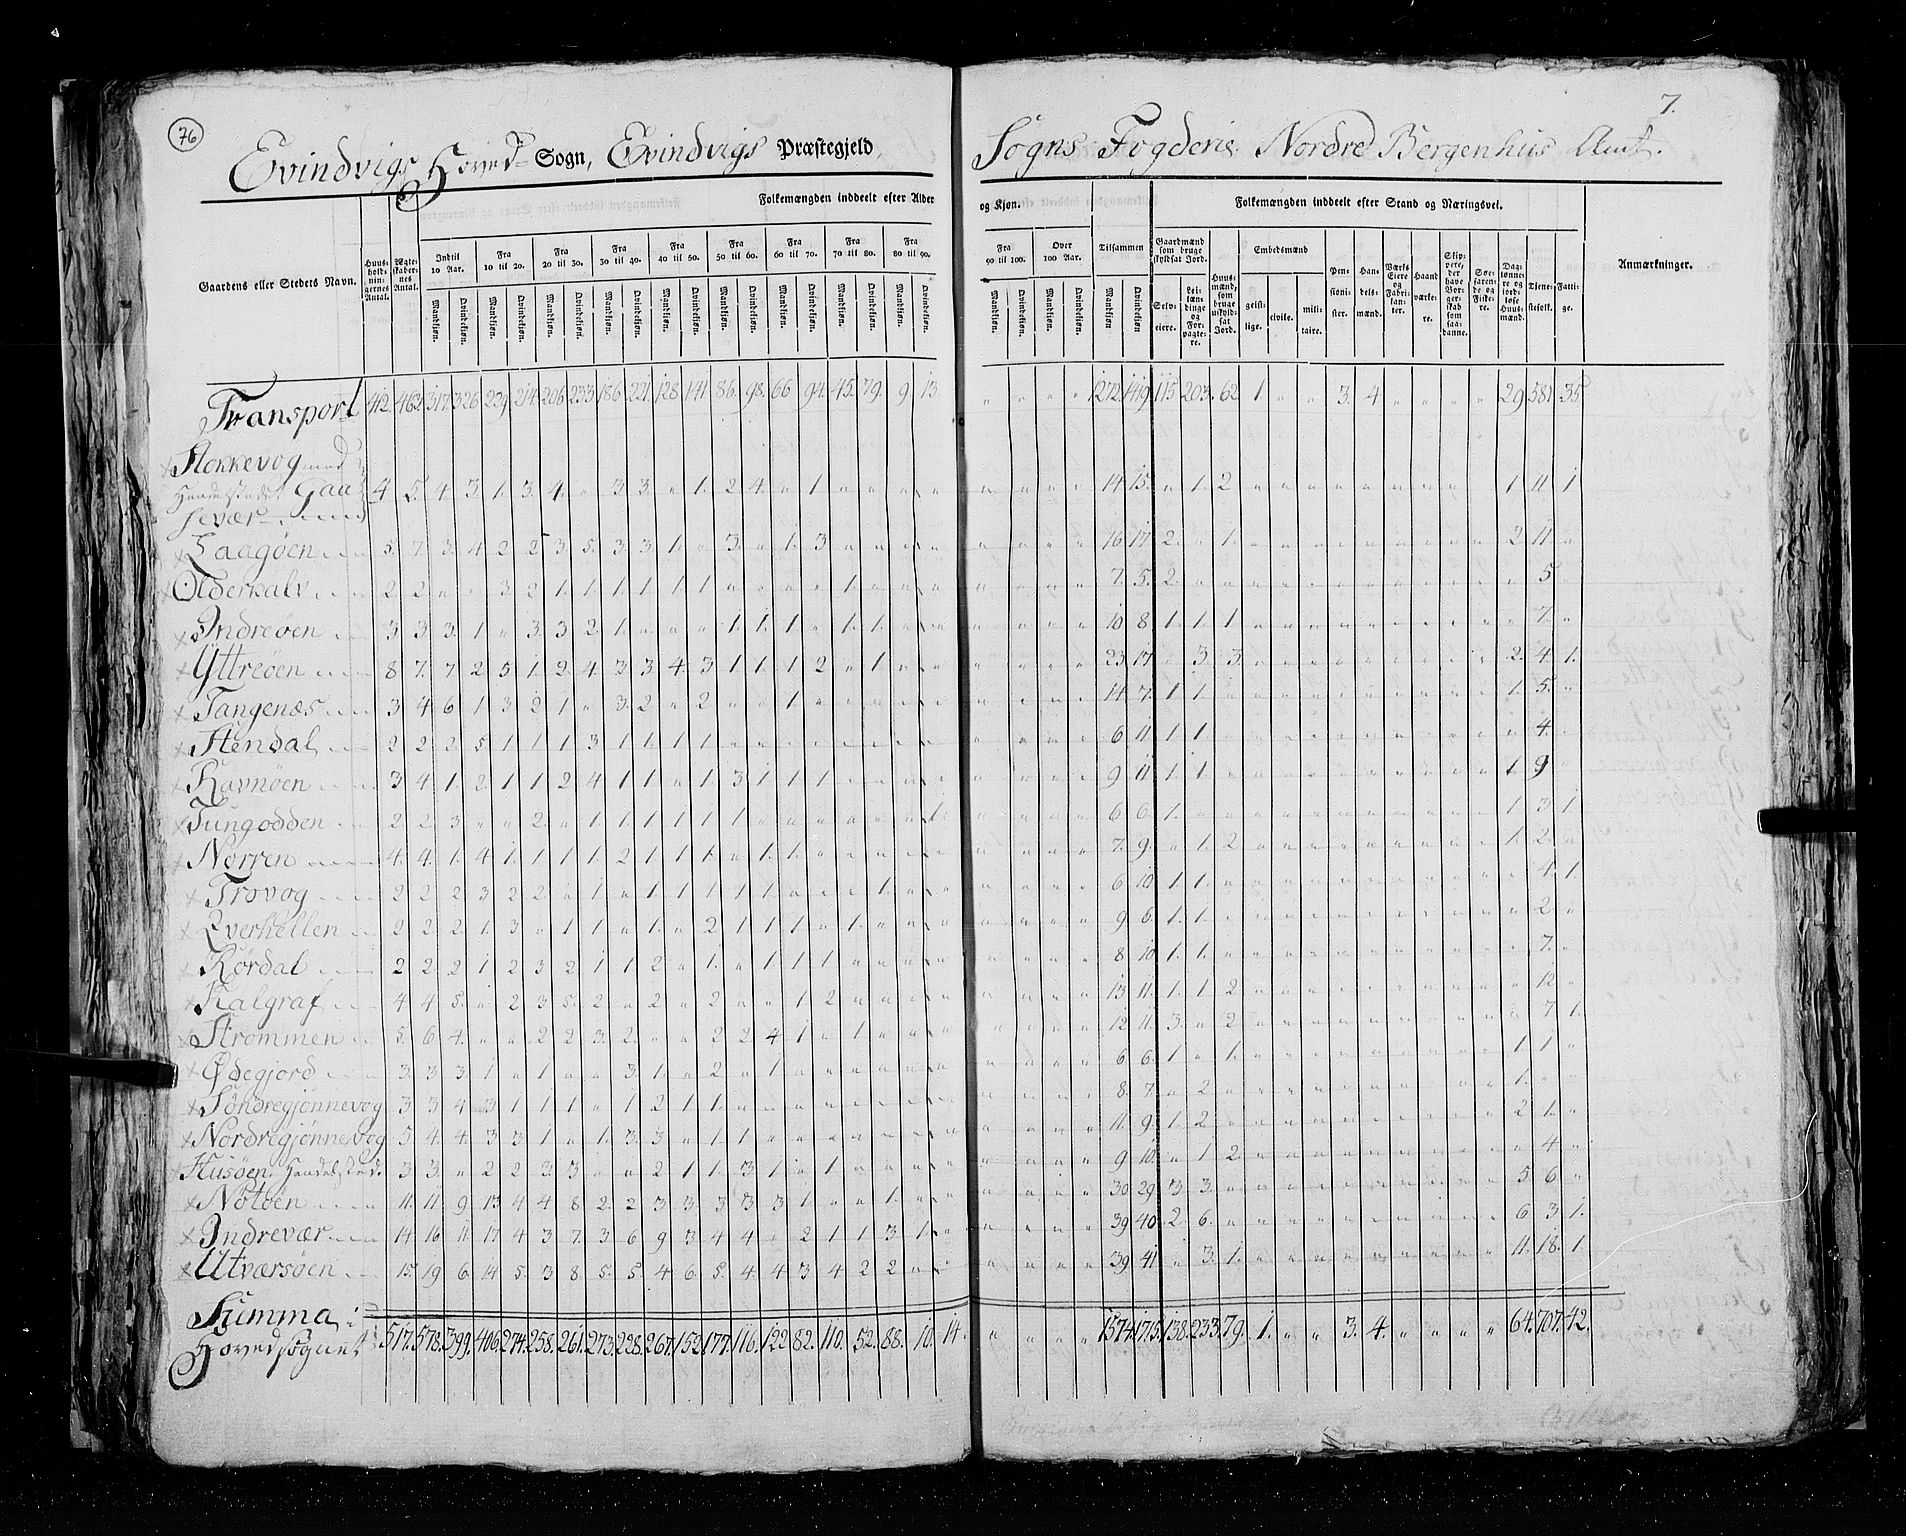 76
7.
Evindvigs Hoved Sogn, Evindvigs Præstegjeld, Sogns Fogderie Nordre Bergenhus Amt.
Folkemængden inddeelt efter Alder og Kjøn.
Folkemængden inddeelt efter Stand og Næringsvei.
Gaardens eller Stedets Navn.
Huusholdningernes Antal.
Ægteskabernes Antal.
Indtil 10 Aar.
Fra 10 til 20.
Fra 20 til 30.
Fra 30 til 40.
Fra 40 til 50.
Fra 50 til 60.
Fra 60 til 70.
Fra 70 til 80.
Fra 80 til 90.
Fra 90 til 100.
Over 100 Aar.
Tilsammen
Mandkjøn. Qvindekjøn.
Gaardmænd som bruge skyldsat Jord.
Selveiere.
Leilændinge og Forpagtere.
Huusmænd, som bruge uskyldsat Jord.
Embedsmænd
geistlige. civile. militaire.
Pensionister.
Handelsmænd.
Værks Eiere og Fabrikanter.
Haandværkere.
Skippere, der have Borgerskab som saadanne.
Søefarende og Fiskere.
Daglønnere og jordløse Huusmænd.
Tjenestefolk.
Fattige.
Anmærkninger.
Transport 412. 462. 317. 326 239. 214 206 233 186. 221. 128 141 86. 98. 66 94. 45. 79. 9 13 " " " " 1272. 1419. 115 203. 62 1. " " 3. 4. " " " " 29 581. 35.
Flokkevog med
Handelstedet Gaa
sevær 4 5. 4 3. 1. 3. 4. " 3 3. " 1. 2 4. " 1 " " " " " " " " 14 15. " 1. 2 " " " " " " " " " 1 11 1
Laagøen 5. 7. 3. 4 2 2 3 5. 3 3 1. " 3. " 1. 3 " " " " " " " " 16 17 2. " 1. " " " " " " " " " 2 11. "
Olderkalv 2 2 " " 3 2 1. 1. 1. 1. 1. 1 " " " " 1. " " " " " " " 7. 5. 2. " " " " " " " " " " " " 5 "
Indreøen 3 3 3. 1 " 3. 3 2. 1. " " " 1. 1. 1 " 1. 1. " " " " " " 10 8 1. 1. 1 " " " " " " " " " " 7. "
Yttreøen 8 7. 7 2 5 1. 2 4. 3 3 4. 3 1. 1 1 2 " 1. " " " " " " 23 17 " 3 3. " " " " " " " " " 2. 4. 1.
Tangenæs 3 4 6 1 3 2 1. " 3. 2 " 2 " " 1. " " " " " " " " " 14 7. 1 1 " " " " " " " " " " 1. 5. "
Stendal 2 2 2 5 1. 1 1 3 1 1 1. 1 " " " " " " " " " " " " 6 11 1 1 " " " " " " " " " " " 4. "
Ravnøen 3 4 1. 2 1 1 2 4 1 1 " 1. 3 1. 1 1 " " " " " " " " 9 11. 1. 1. " " " " " " " " " " 1. 9 "
Tungodden 2 2. 3 " " 2. " 1. 1 1 1. 1 1. " " " " " " 1. " " " " 6 6. 1. " " " " " " " " " " " 1 3 1
Norren 4. 4. 1. 4 1. 1. 1 1. 2 1 1 1. " 1. 1 " " " " " " " " " 7. 9. " 1. 2 " " " " " " " " " 1. 2. "
Trovog 2 2 2 3 2 2. " 1. " 1. 1 1 1 1 " " " 1. " " " " " " 6 10 1. 1. " " " " " " " " " " " 4. 1
Tverhellen 2 2 2 1. 3 " 1. 1 " 1. " 2 1. 1 1 " 1. " " " " " " " 9 6. 1. 1. " " " " " " " " " " " 2 "
Rørdal 2 2. 2 1 2 3 2. 1 1 2 " 1. " 1. 1 1 " " " " " " " " 8 10 1. 1. " " " " " " " " " " " 7. "
Kalgraf 4 4 5. " 2 3 5. 2 " 2 " 2 " " 1 2 " " " " " " " " 13. 11. 1. 1 2 " " " " " " " " " " 12 "
Strommen 5. 6 4. " " 2 2 3. 2. " " 2 2 4 1 " 1. " " " " " " " 12 11. 3. " 2 " " " " " " " " " " 7 1.
Ødegjord 3. 3 3 1. " 1. " " 3. 1. " 2 " " 1 " " " " " " " " " 6 6. 1. " 1. " " " " " " " " " 1 1 "
Søndregjønnevog 3 3 4 3 1 1 1 " 1 2 1 1. " " " " " " " " " " " " 8 7. " 2 " " " " " " " " " " 1. " "
Nordregjønnevog 5 4. 4. 3 3 1 " 1. 3. 3 " 1. 1 " " " " " " " " " " " 11. 9. 1. 2 " " " " " " " " " " 2 1. "
Husøen Handelsted. 3 3. " 2 2 3 3 " " 2 1 1. 3 1. " 1. " " " " " " " " 9 10. " 1. 2 " " " " " " " " " " 4 "
Notøen 11. 11. 9 15 4 4 8 2. 2 3 3. 3 3 3 1 " " 1. " " " " " " 30 29 3 3. " " " " " " " " " " 5 6 "
Indrevær 14 16 11. 17 4 3 7. 3 6 9 3 4 4 " 2 1 1 3 1. " " " " " 39 40. 2. 6. " " " " " " " " " " 6 3 1.
Utværsøen 15 19 6. 14 5. 3 8. 5. 5. 4 6. 5. 4. 4 3 4 2 2. " " " " " " 39 41 " 3. 1. " " " " " " " " " 11. 18. 1
Summa i
Hovedsognet 517. 578. 399. 406. 274. 258. 261. 273. 228. 267. 152 177. 116. 122 82. 110. 52. 88. 10. 14. " " " " 1574. 1715. 138. 233. 79. 1. " " 3. 4. " " " " 64. 707. 42.